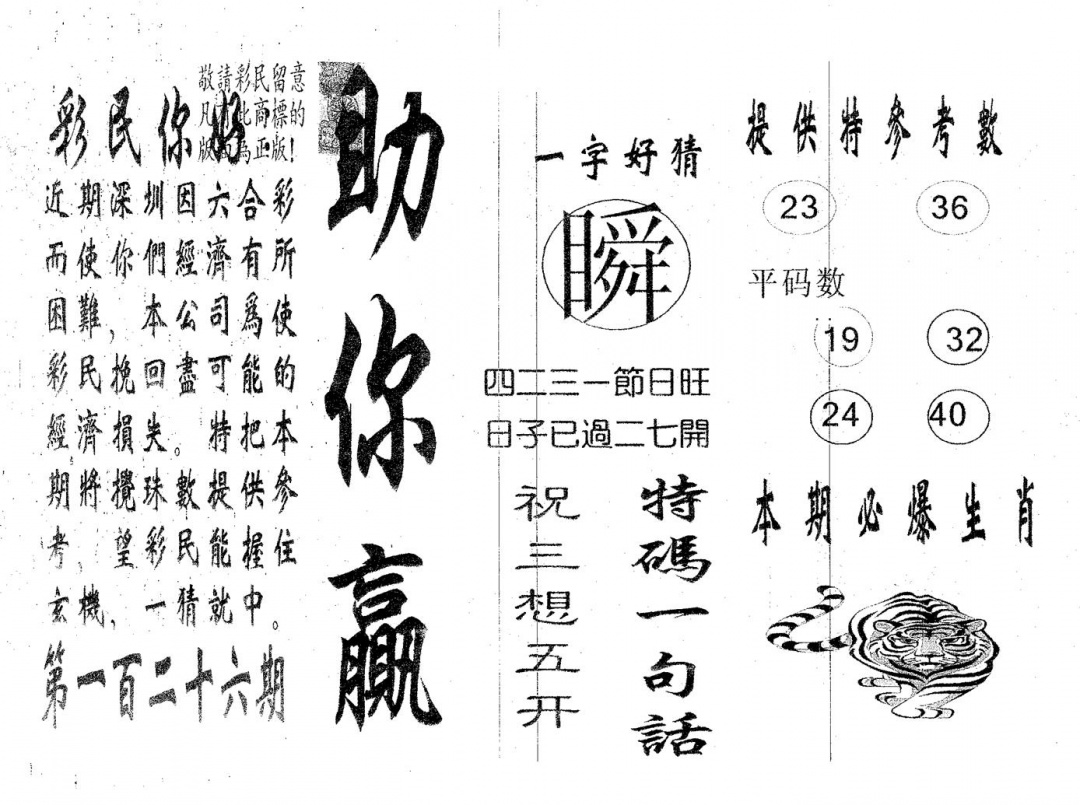 敬請彩民留意
凡此商標的
版為正版！
彩民你好
近期深圳因六合彩
而使你們經濟有所
困難，本公司爲使
彩民挽回盡可能的
經濟損失。特把本
期將攪珠數提供參
考，望彩民能握住
玄機，一猜就中。
第一百二十六期
助你贏
一字好猜
瞬
四二三一節日旺
日子已過二七開
特碼一句話
祝三想五开
提供特參考數
23 36
平码数
19 32
24 40
本期必爆生肖